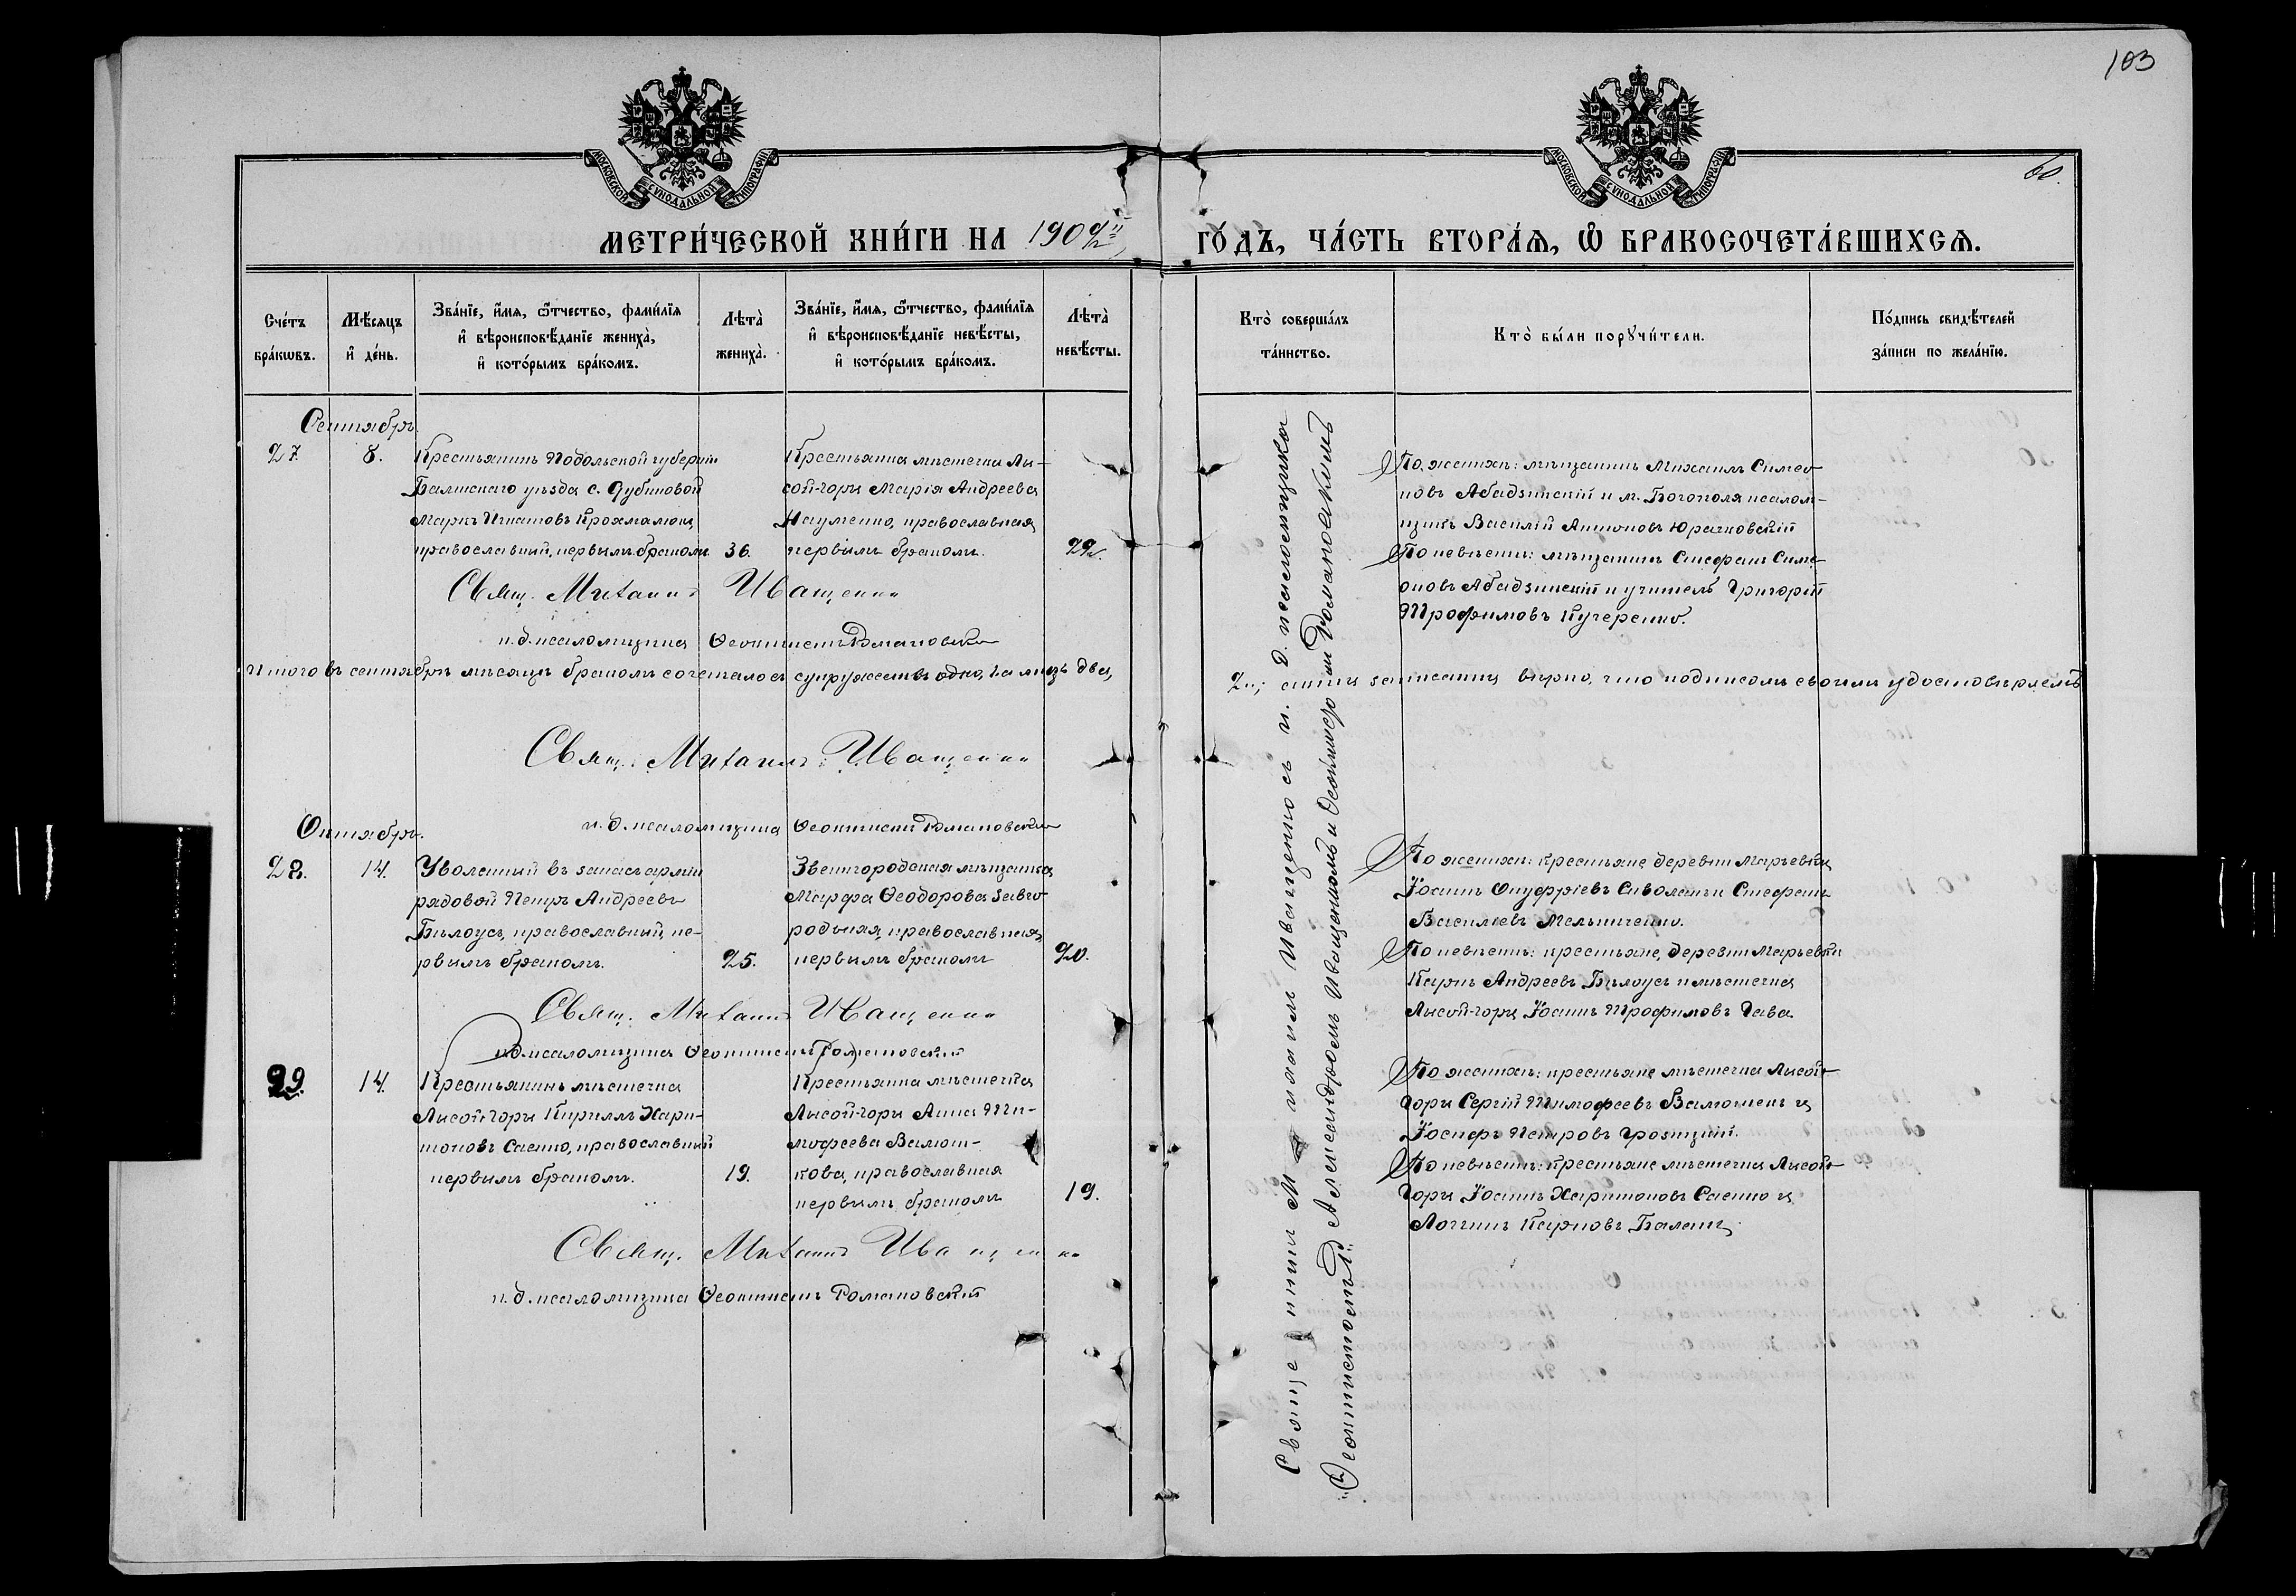 103
60.
МОСКОВСКОЙ СѴНОДАЛЬНОЙ ТИПОГРАФІИ
МОСКОВСКОЙ СѴНОДАЛЬНОЙ ТИПОГРАФІИ
МЕТРИ́ЧЕСКОЙ КНИ́ГИ НА 1902й ГО́ДЪ, ЧА́СТЬ ВТОРА́Ѧ, Ѿ БРАКОСОЧЕТА́ВШИХСѦ.
Сче́тъ бра́кѡвъ.
Мѣ́сяцъ и҆ де́нь.
Зва́нїе, и҆́мѧ, ѻ҆́тчество, фами́лїѧ и҆ вѣроисповѣ́данїе жениха̀, и҆ кото́рымъ бра́комъ.
Лѣта̀ жениха̀.
Зва́нїе, и҆́мѧ, ѻ҆́тчество, фами́лїѧ и҆ вѣроисповѣ́данїе невѣ́сты, и҆ кото́рымъ бра́комъ.
Лѣта̀ невѣ́сты.
Кто̀ соверша́лъ та́инство.
Кто̀ бы́ли порꙋчи́тели.
По́дпись свидѣ́телей за́писи по жела́нїю.
Сентябрь.
27.
8.
Крестьянинъ Подольской губерніи
Балтскаго уѣзда с. Дубиновой
Маркъ Игнатовъ Крохмалюкъ,
православный, первымъ бракомъ
36.
Крестьянка мѣстечка Лы-
сой-горы Марія Андреева
Науменко, православная,
первымъ бракомъ.
22.
По женихѣ: мѣщанинъ Михаилъ Симео-
новъ Абадзинскій и м. Богополя псалом-
щикъ Василій Антоновъ Юрачковскій
По невѣстѣ: мѣщанинъ Стефанъ Симе-
оновъ Абадзинскій и учитель Григорій
Трофимовъ Кучеренко.
Свящ. Михаилъ Иващенко
и. д. псаломщика Ѳеоктистъ Романовскій
Итого въ сентябрѣ мѣсяцѣ бракомъ сочеталось супружествъ одно, а лицъ два,
2., статья записана вѣрно, что подписомъ своимъ удостовѣряемъ
Свящ. Михаилъ Иващенко
и. д. псаломщика Ѳеоктистъ Романовскій
Октябрь.
28.
14.
Уволенный въ запасъ арміи
рядовой Петръ Андреевъ
Бѣлоусъ, православный, пе-
рвымъ бракомъ.
25.
Звенигородская мѣщанка
Марфа Ѳеодорова Завго-
родьняя, православная,
первымъ бракомъ
20.
По женихѣ: крестьяне деревни Марьевки
Іоаннъ Онуфріевъ Сиволапъ и Стефанъ
Василіевъ Мельниченко.
По невѣстѣ: крестьяне, деревни Марьевки
Карпъ Андреевъ Бѣлоусъ и мѣстечка
Лысой-горы Іоаннъ Трофимовъ Гава.
Свящ. Михаилъ Иващенко
и. д. псаломщика Ѳеоктистъ Романовскій
29.
14.
Крестьянинъ мѣстечка
Лысой-горы Кириллъ Хари-
тоновъ Саенко, православный
первымъ бракомъ.
19.
Крестьянка мѣстечка
Лысой-горы Анна Ти-
мофеева Валюш-
кова, православная
первымъ бракомъ
19.
По женихѣ: крестьяне мѣстечка Лысой-
горы Сергій Тимофеевъ
Іосифъ Петровъ Грозицкій.
По невѣстѣ: крестьяне мѣстечка Лысой-
горы Іоаннъ Харитоновъ Саенко и
Логгинъ Карповъ Баланъ.
Свящ. Михаилъ Иващенко
и. д. псаломщика Ѳеоктистъ Романовскій
Священникъ Михаилъ Иващенко съ и. д. псаломщика
Ѳеоктистомъ Александромъ Иващенкомъ и Ѳеоктистомъ Романовскимъ